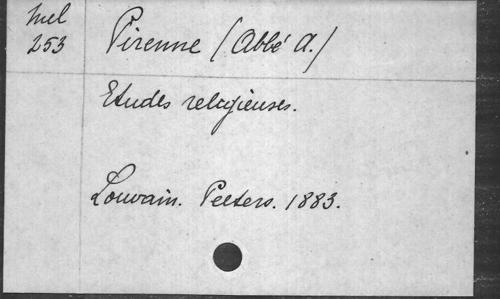 Mel
253
Pirenne (Abbé A.)
Etudes religieuses.
Louvain. Peeters. 1883.